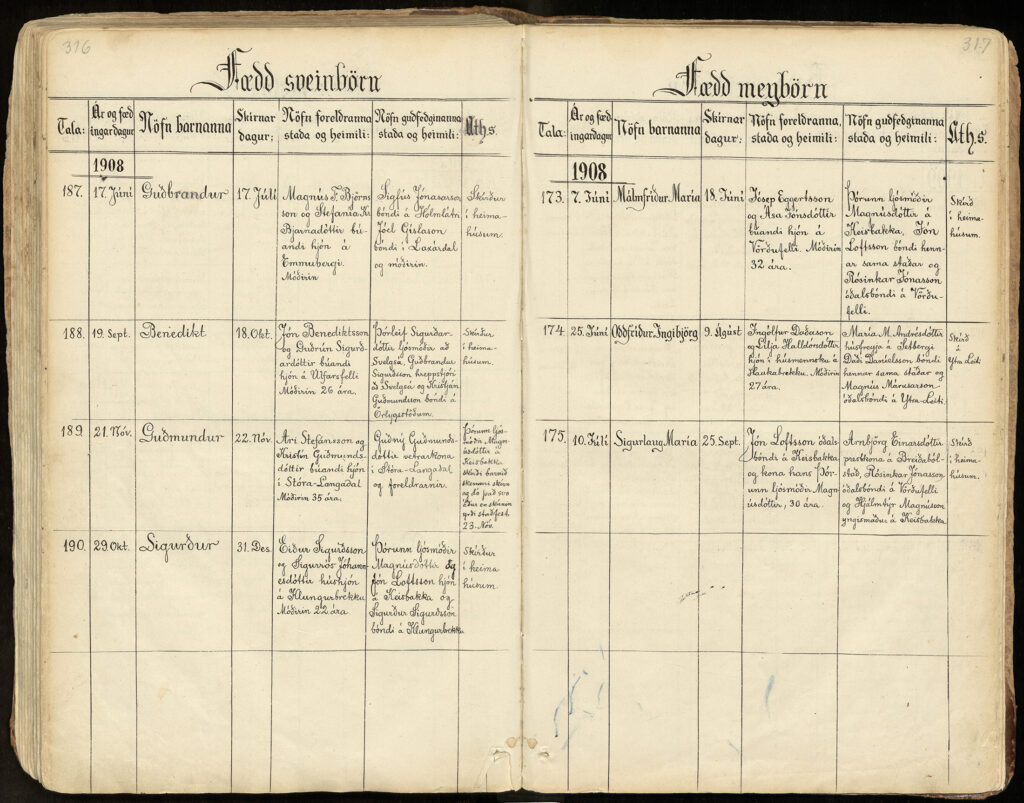 316
Fædd sveinbörn
Tala:
Ár og fæd
ingardagur
Nöfn barnanna
Skirnar
dagur:
Nöfn foreldranna
staða og heimili:
Nöfn guðfedginanna
staða og heimili:
Ath.s.
1908
187.
17. Júní
Guðbrandur
17. Júlí
Magnús F. Björns
son og Stefanía Kr.
Bjarnadóttir bú-
andi hjón á
Emmubergi.
Móðirin
Sigfús Jónasarson
bóndi á Hólmlátri
Jóel Gíslason
bóndi í Laxárdal
og móðirin.
Skírður
í heima-
húsum.
188.
19. Sept.
Benedikt
18. Okt.
Jón Benediktsson
og Guðrún Sigurð-
ardóttir búandi
hjón á Úlfarsfelli
Móðirin 26 ára.
Þórleif Sigurðar-
dóttir ljósmóðir að
Svelgsá, Guðbrandur
Sigurðsson hreppstjóri
að Svelgsá og Kristján
Guðmundsson bóndi á
Örlygsstöðum.
Skírður
í heima-
húsum.
189.
21. Nóv.
Guðmundur
22. Nóv.
Ari Stefánsson og
Kristín Guðmunds-
dóttir búandi hjón
í Stóra-Langadal
Móðirin 35 ára.
Guðný Guðmunds-
dóttir vetrarkona
í Stóra-Langadal
og foreldrarnir.
Þórunn ljós-
móðir Magn-
úsdóttir á
Keisbakka
skírði barnið
skemmri skírn
og dó það svo
áður en skírnin
yrði staðfest
23. Nóv.
190.
29. Okt.
Sigurður
31. Des.
Eiður Sigurðsson
og Sigurrós Jóhann-
esdóttir húshjón
á Klungurbrekku
Móðirin 22 ára
Þórunn ljósmóðir
Magnúsdóttir og
Jón Loftsson hjón
á Keisbakka og
Sigurður Sigurðsson
bóndi á Klungurbrekku
Skírður
í heima
húsum.
317
Fædd meybörn
Tala:
Ár og fæd
ingardagur
Nöfn barnanna
Skirnar
dagur:
Nöfn foreldranna,
staða og heimili:
Nöfn guðfedginanna
staða og heimili:
Ath.s.
1908
173.
7. Júní
Málmfríður María
18. Júní
Jósep Eggertsson
og Ása Jónsdóttir
búandi hjón á
Vörðufelli. Móðirin
32 ára.
Þórunn ljósmóðir
Magnúsdóttir á
Keisbakka, Jón
Loftsson bóndi henn-
ar sama staðar og
Rósinkar Jónasson
óðalsbóndi á Vörðu-
felli.
Skírð
í heima-
húsum.
174.
25. Júní
Oddfríður Ingibjörg
9. Ágúst
Ingólfur Daðason
og Lilja Halldórsdóttir
hjón í húsmensku á
Haukabrekku. Móðirin
27 ára.
María M. Andrésdóttir
húsfreyja á Setbergi
Daði Daníelsson bóndi
hennar sama staðar og
Magnús Márusarson
óðalsbóndi á Ytra-Leiti.
Skírð
á
Ytra Leiti
175.
10. Júlí
Sigurlaug María
25. Sept.
Jón Loftsson óðals
bóndi á Keisbakka
og kona hans Þór-
unn ljósmóðir Magn-
úsdóttir, 30 ára.
Arnbjörg Einarsdóttir
prestkona á Breiðaból-
stað, Rósinkar Jónasson
óðalsbóndi á Vörðufelli
og Hjálmtýr Magnússon
yngismaður á Keisbakka.
Skírð
í heima-
húsum.